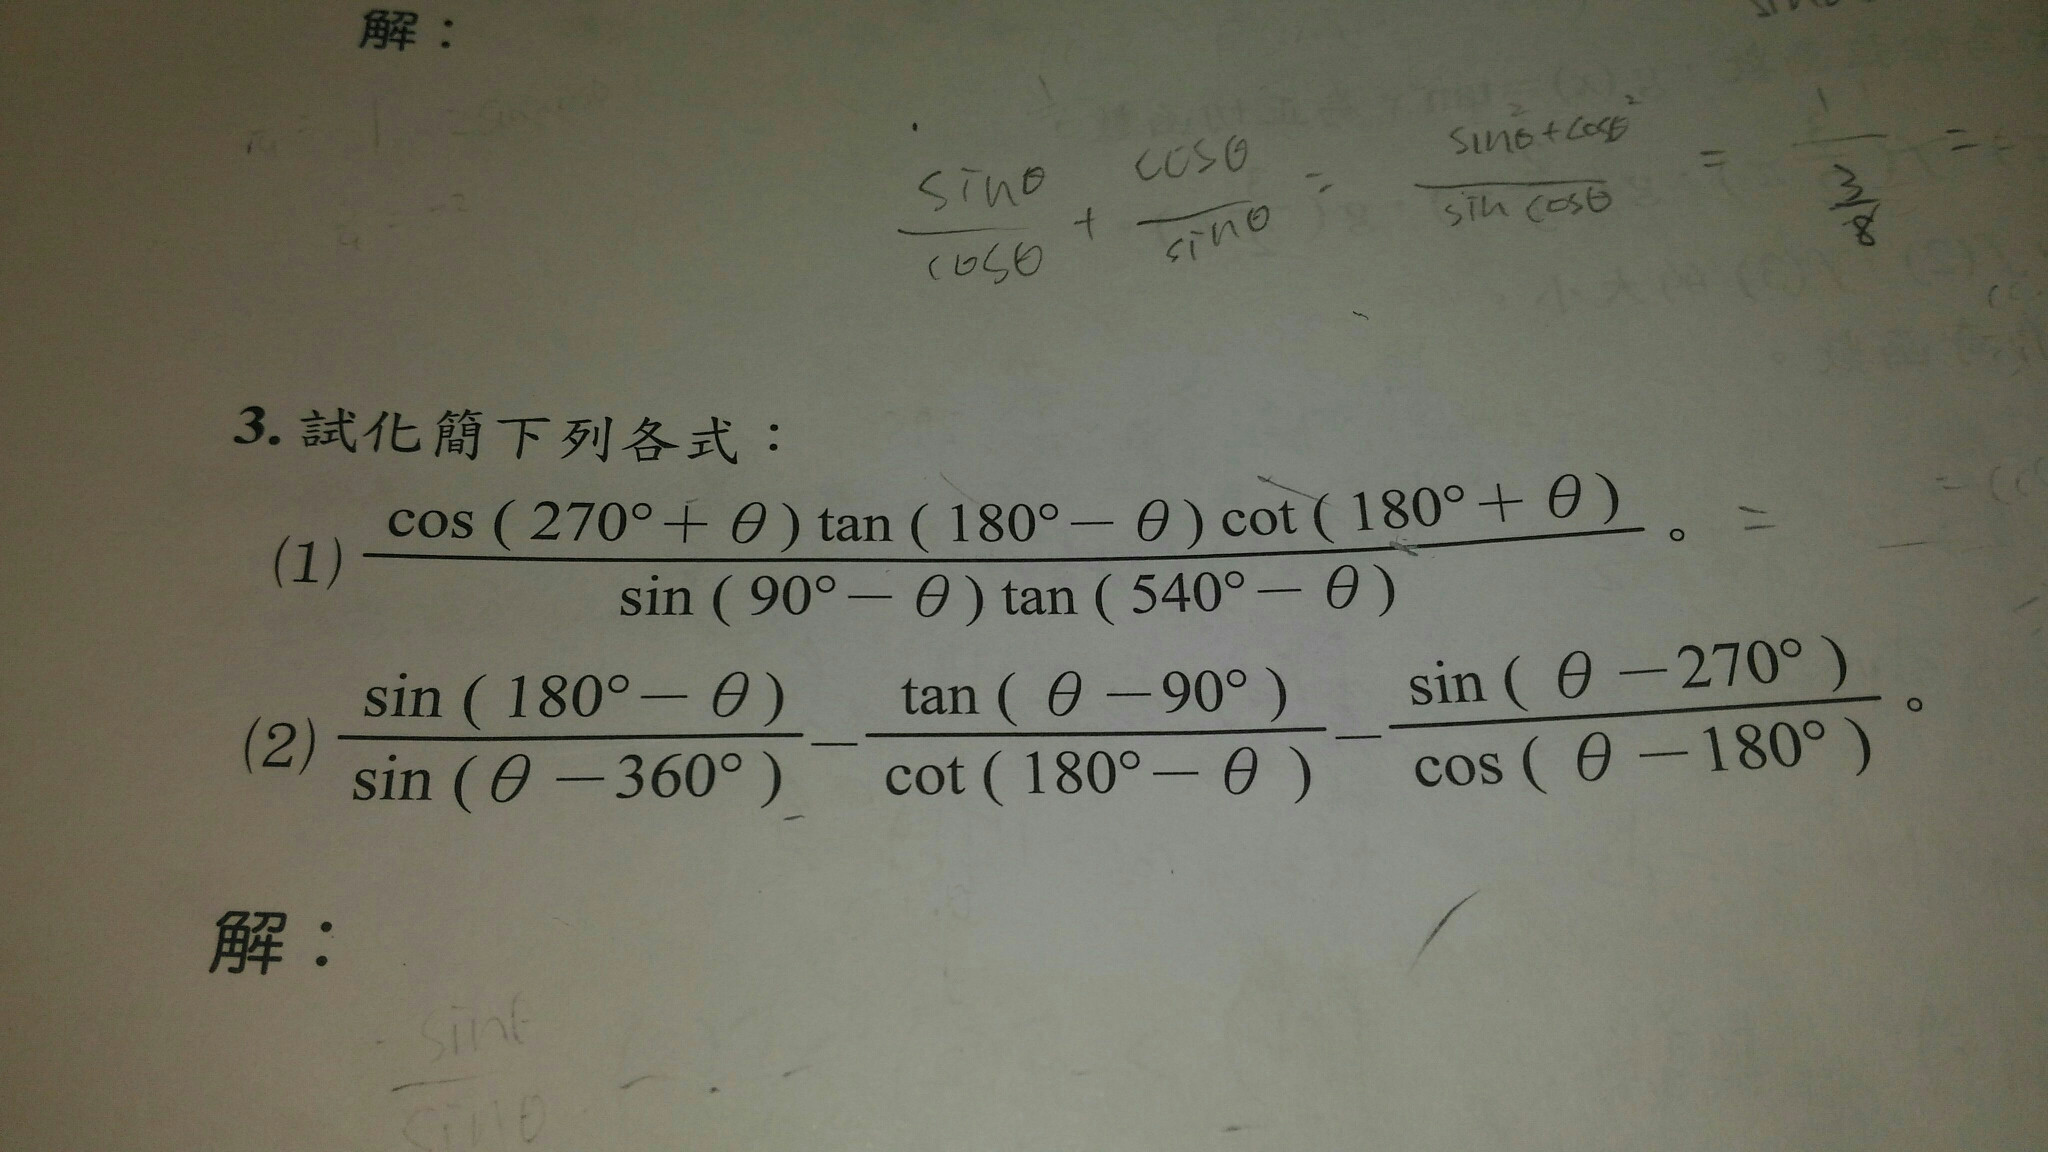 解：
sinθ/cosθ + cosθ/sinθ = sin²θ+cosθ²/sin cosθ = 1/(3/8) =
3. 試化簡下列各式：
(1) cos(270°+θ)tan(180°−θ)cot(180°+θ)/sin(90°−θ)tan(540°−θ)。=
(2) sin(180°−θ)/sin(θ−360°) − tan(θ−90°)/cot(180°−θ) − sin(θ−270°)/cos(θ−180°)。
解：